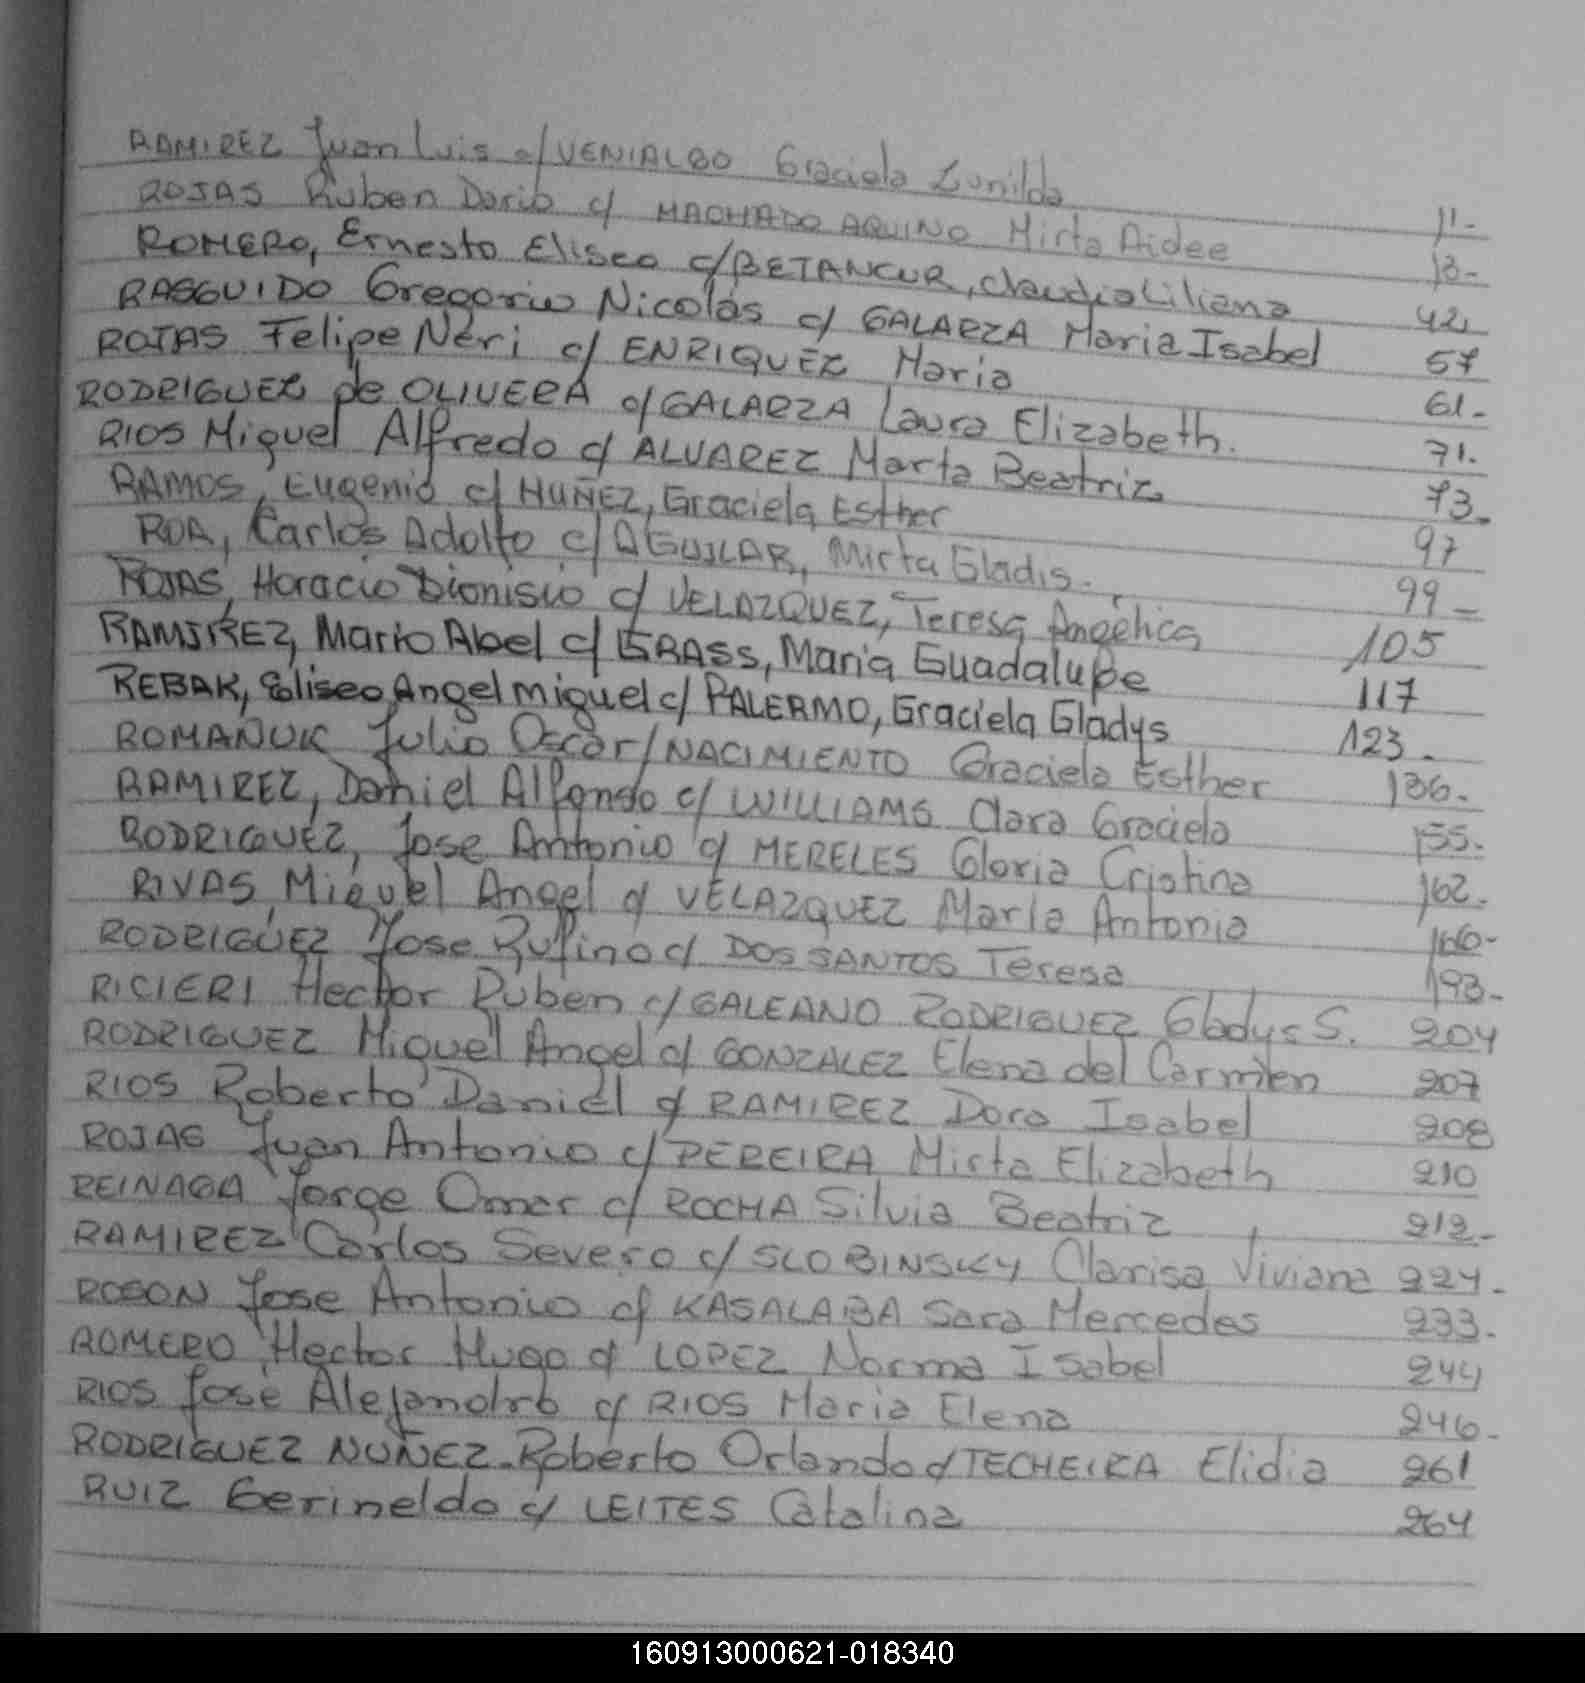 RAMIREZ Juan Luis c/ VENIALGO Graciela Zunilda 11.-
ROJAS Ruben Dario c/ MACHADO AQUINO Mirta Aidee 13.-
ROMERO, Ernesto Eliseo c/ BETANCUR, Claudia Liliana 42
RASGUIDO Gregorio Nicolás c/ GALARZA Maria Isabel 57
ROJAS Felipe Neri c/ ENRIQUEZ Maria 61.-
RODRIGUEZ de OLIVERA c/ GALARZA Laura Elizabeth. 71.
RIOS Miguel Alfredo c/ ALVAREZ Marta Beatriz 73.
RAMOS, Eugenio c/ NUÑEZ, Graciela Esther 97
ROA, Carlos Adolfo c/ AGUILAR, Mirta Gladis. 99-
ROJAS, Horacio Dionisio c/ VELAZQUEZ, Teresa Angélica 105
RAMIREZ, Mario Abel c/ GRASS, Maria Guadalupe 117
REBAK, Eliseo Angel Miguel c/ PALERMO, Graciela Gladys 123.
ROMANUK Julio Oscar/ NACIMIENTO Graciela Esther 136.
RAMIREZ, Daniel Alfonso c/ WILLIAMS Clara Graciela 155.
RODRIGUEZ, Jose Antonio c/ MERELES Gloria Cristina 162.
RIVAS, Miguel Angel c/ VELAZQUEZ Maria Antonia 166-
RODRIGUEZ Jose Rufino c/ DOS SANTOS Teresa 193-
RICIERI Hector Ruben c/ GALEANO RODRIGUEZ Gladys S. 204
RODRIGUEZ Miguel Angel c/ GONZALEZ Elena del Carmen 207
RIOS Roberto Daniel c/ RAMIREZ Dora Isabel 208
ROJAS Juan Antonio c/ PEREIRA Mirta Elizabeth 210
REINAGA Jorge Omar c/ ROCHA Silvia Beatriz 212-
RAMIREZ Carlos Severo c/ SLOBINSKY Clarisa Viviana 224.
ROBON Jose Antonio c/ KASALABA Sara Mercedes 233.
ROMERO Hector Hugo c/ LOPEZ Norma Isabel 244
RIOS José Alejandro c/ RIOS Maria Elena 246.
RODRIGUEZ NUÑEZ-Roberto Orlando c/ TECHEIRA Elidia 261
RUIZ Gerineldo c/ LEITES Catalina 264
160913000621-018340